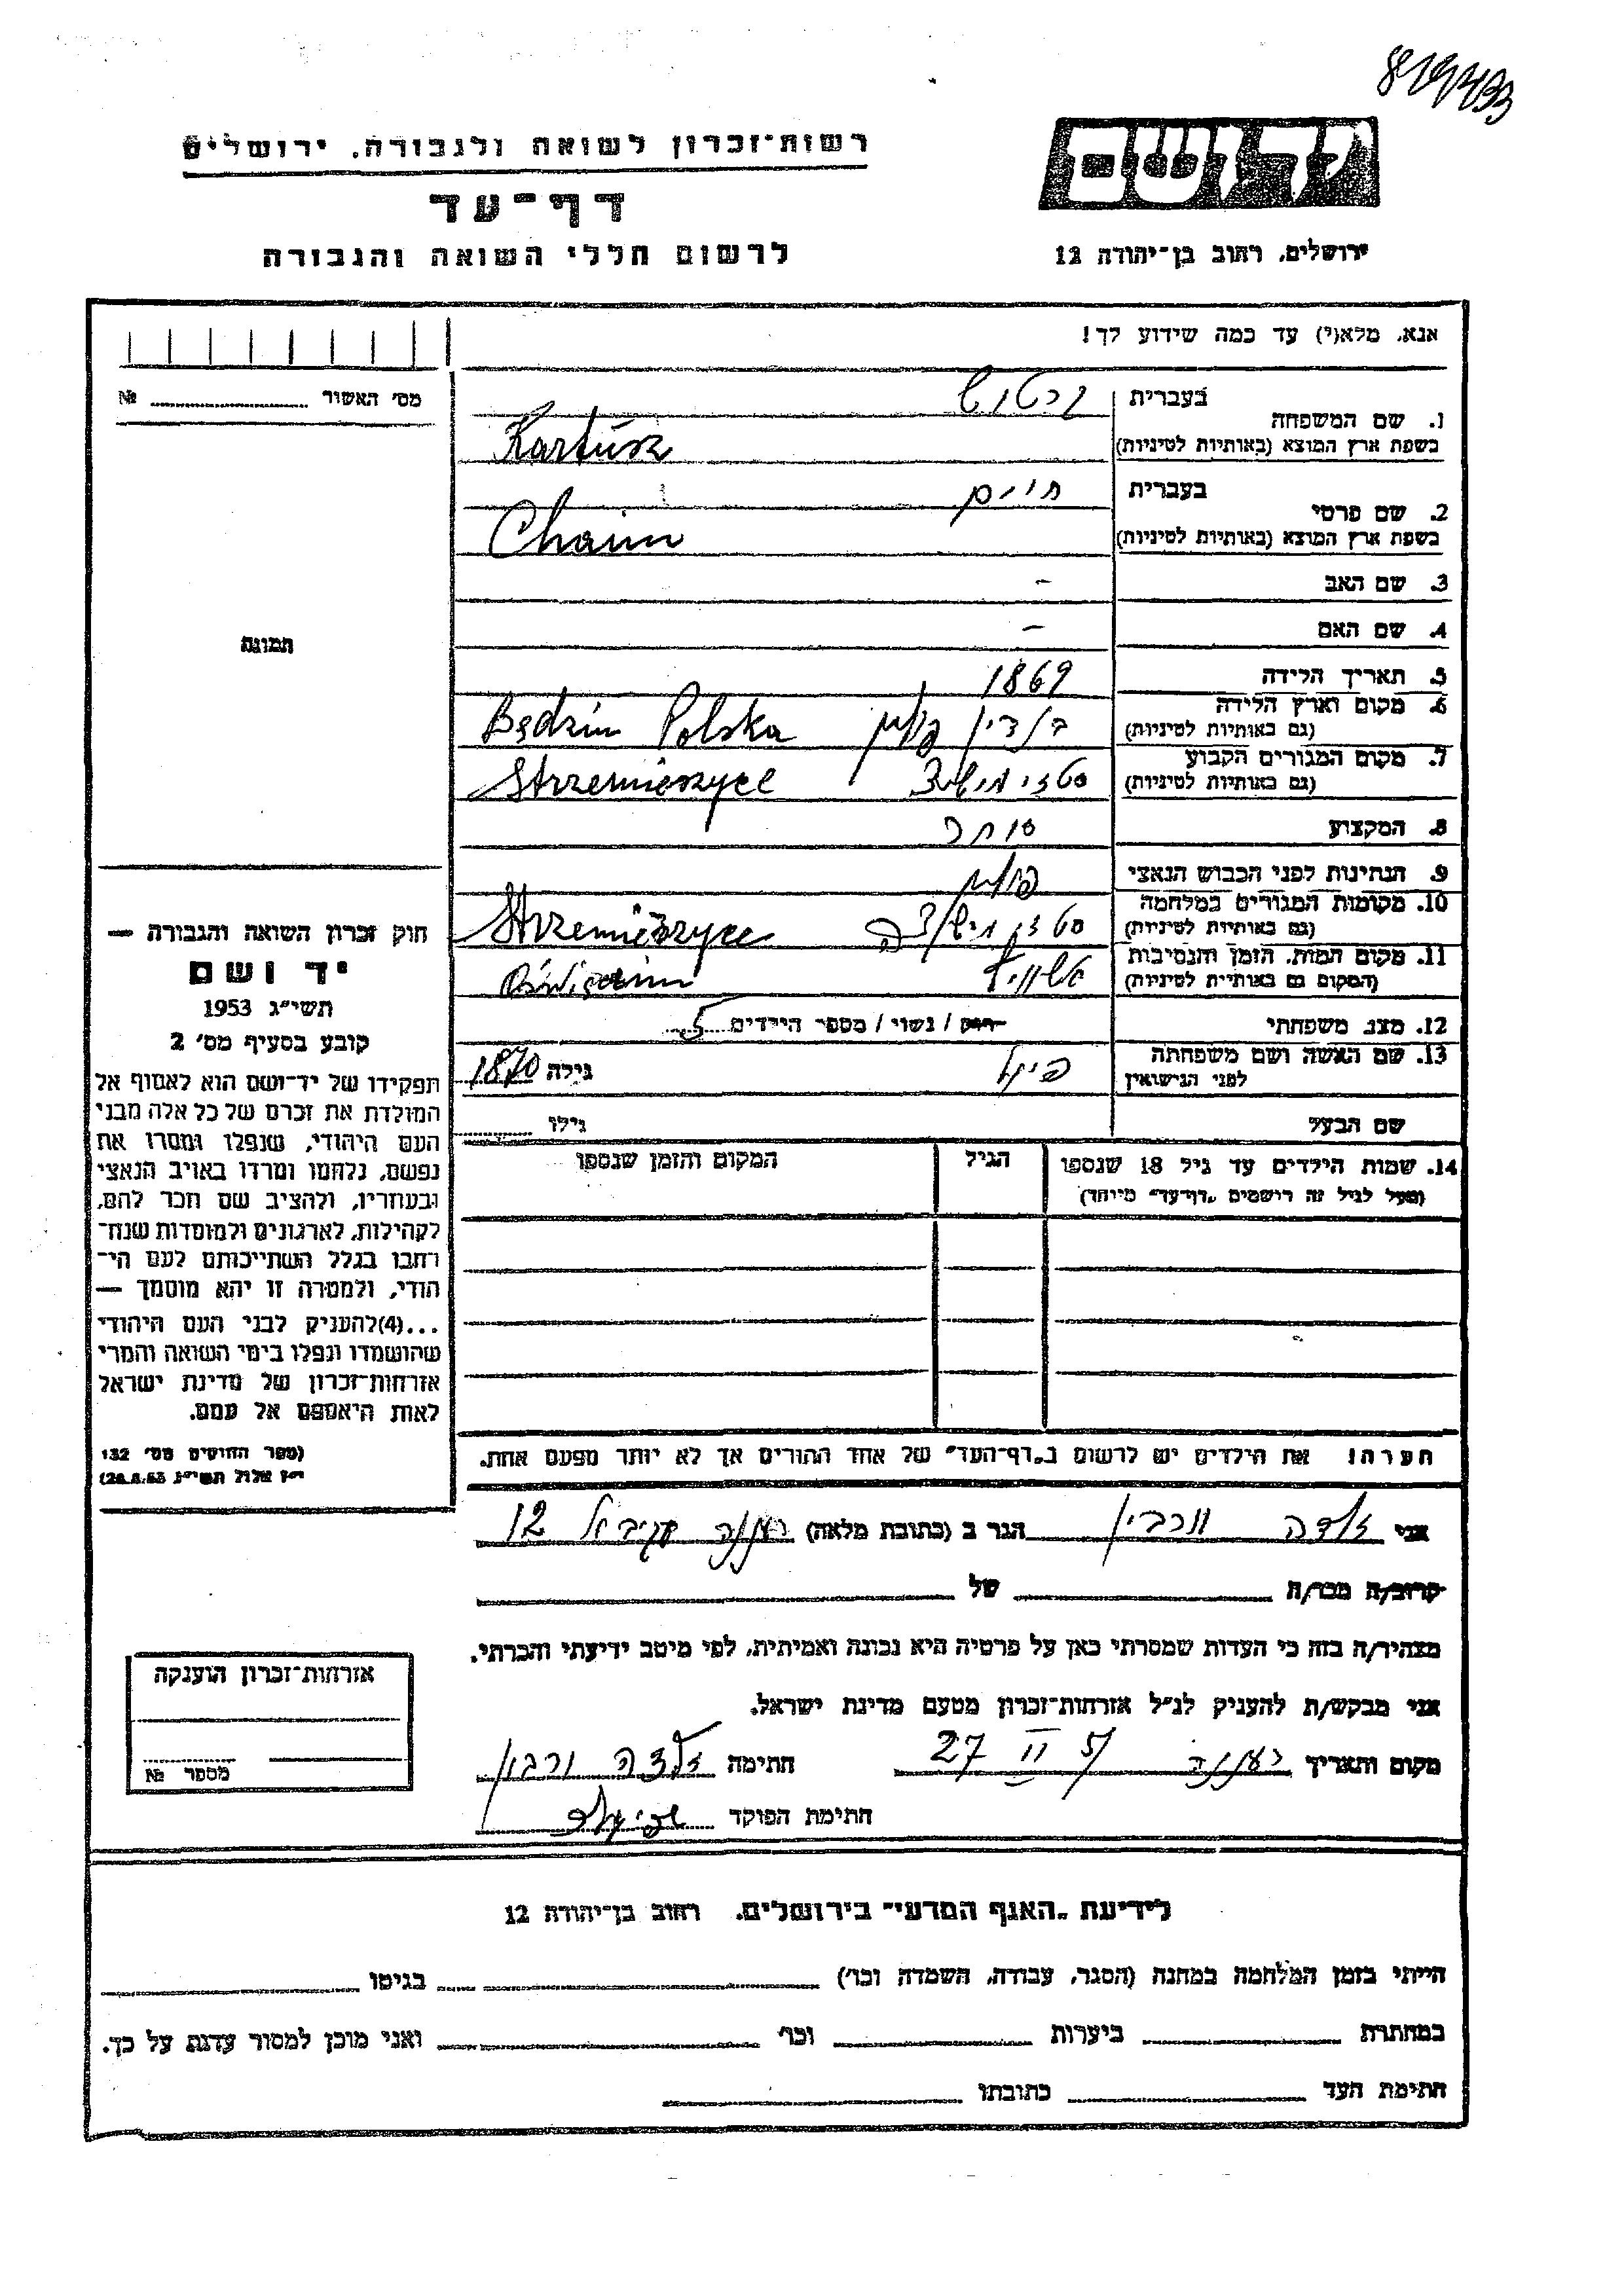 819433
רשות־זכרון לשואה ולגבורה, ירושלים
ידושם
דף־עד
לרשום חללי השואה והגבורה
ירושלים, רחוב בן־יהודה 12
אנא, מלא(י) עד כמה שידוע לך!
מס' האשור № 
בעברית
1. שם המשפחה
בשפת ארץ המוצא (באותיות לטיניות) Kartusz
2. שם פרטי
בעברית חיים
בשפת ארץ המוצא (באותיות לטיניות) Chaim
3. שם האב –
4. שם האם –
תמונה
5. תאריך הלידה 1869
6. מקום וארץ הלידה (גם באותיות לטיניות) בנדין פולין Będzin Polska
7. מקום המגורים הקבוע (גם באותיות לטיניות) Strzemieszyce
8. המקצוע סוחר
9. הנתינות לפני הכבוש הנאצי פולין
10. מקומות המגורים במלחמה (גם באותיות לטיניות) Strzemieszyce
11. מקום המות, הזמן והנסיבות (המקום גם באותיות לטיניות) Oświęcim
12. מצב משפחתי רווק / נשוי / מספר הילדים 5
13. שם האשה ושם משפחתה לפני הנישואין גילה 1870
שם הבעל גילו
14. שמות הילדים עד גיל 18 שנספו
(מעל לגיל זה רושמים "דף־עד" מיוחד)
הגיל
המקום והזמן שנספו
חוק זכרון השואה והגבורה —
יד ושם
תשי"ג 1953
קובע בסעיף מס' 2
תפקידו של יד־ושם הוא לאסוף אל
המולדת את זכרם של כל אלה מבני
העם היהודי, שנפלו ומסרו את
נפשם, נלחמו ומרדו באויב הנאצי
ובעוזריו, ולהציב שם וזכר להם,
לקהילות, לארגונים ולמוסדות שנח־
רבו בגלל השתייכותם לעם הי־
הודי, ולמטרה זו יהא מוסמך —
...(4) להעניק לבני העם היהודי
שהושמדו ונפלו בימי השואה והמרי
אזרחות־זכרון של מדינת ישראל
לאות היאספם אל עמם.
(ספר החוקים מס' 132
י"ז אלול תשי"ג 28.8.53)
הערה! את הילדים יש לרשום ב"דף־העד" של אחד ההורים אך לא יותר מפעם אחת.
אני זלדה ורבין הגר ב (כתובת מלאה) רעננה 12
קרוב/ה מכר/ה של
מצהיר/ה בזה כי העדות שמסרתי כאן על פרטיה היא נכונה ואמיתית, לפי מיטב ידיעתי והכרתי.
אני מבקש/ת להעניק לנ"ל אזרחות־זכרון מטעם מדינת ישראל.
מקום ותאריך רעננה 27 II 57 חתימה זלדה ורבין
חתימת הפוקד
אזרחות־זכרון הוענקה
מספר №
לידיעת "האגף המדעי" בירושלים, רחוב בן־יהודה 12
הייתי בזמן המלחמה במחנה (הסגר, עבודה, השמדה וכו') בגיטו
במחתרת ביערות וכו' ואני מוכן למסור עדות על כך.
חתימת העד כתובתו